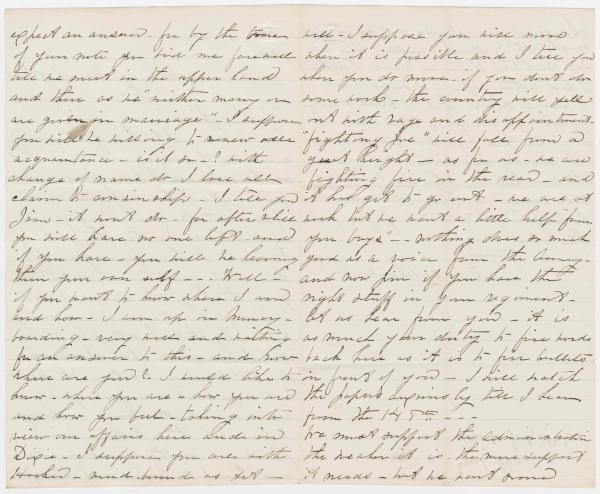 expect an answer - for by the tone
of your note you bid me farewell
till we meet in the upper land
and there as we "neither marry or
are given in marriage" - I suppose
you will be willing to renew
acquaintance - is it so - ? with
change of name do I lose all
claim to cousinship - I tell you
Jim - it won't do - for after while
you will have no one left and
if you have - you will be leaving
them your own self - - - Well -
if you want to know where I am
and how - I am up in
boarding - very well and waiting
for an answer to this - and now
where are you? - I would like to
know - where you are - how you are
and how you feel - taking into
view our affairs here and in
Dixie - I suppose you are with
Hooker - mud bound as yet -
will - I suppose you will move
when it is possible and I tell you
when you do move - if you don't do
some work - the country will yell
out with rage and disappointment -
"fighting Joe" will fall from a
great height - as for us - we are
fighting fire in the rear - and
it has got to go out - we are at
work but we want a little help from
you "boys" - - nothing does so much
good as a voice from the army -
and now Jim if you have the
right stuff in your regiment -
let us hear from you - it is
as much your duty to fire words
back here as it is to fire bullets
in front of you - I will watch
the papers anxiously till I hear
from the 145th - - - -
We must support the administration
the weaker it is - the more support
it needs - but we want